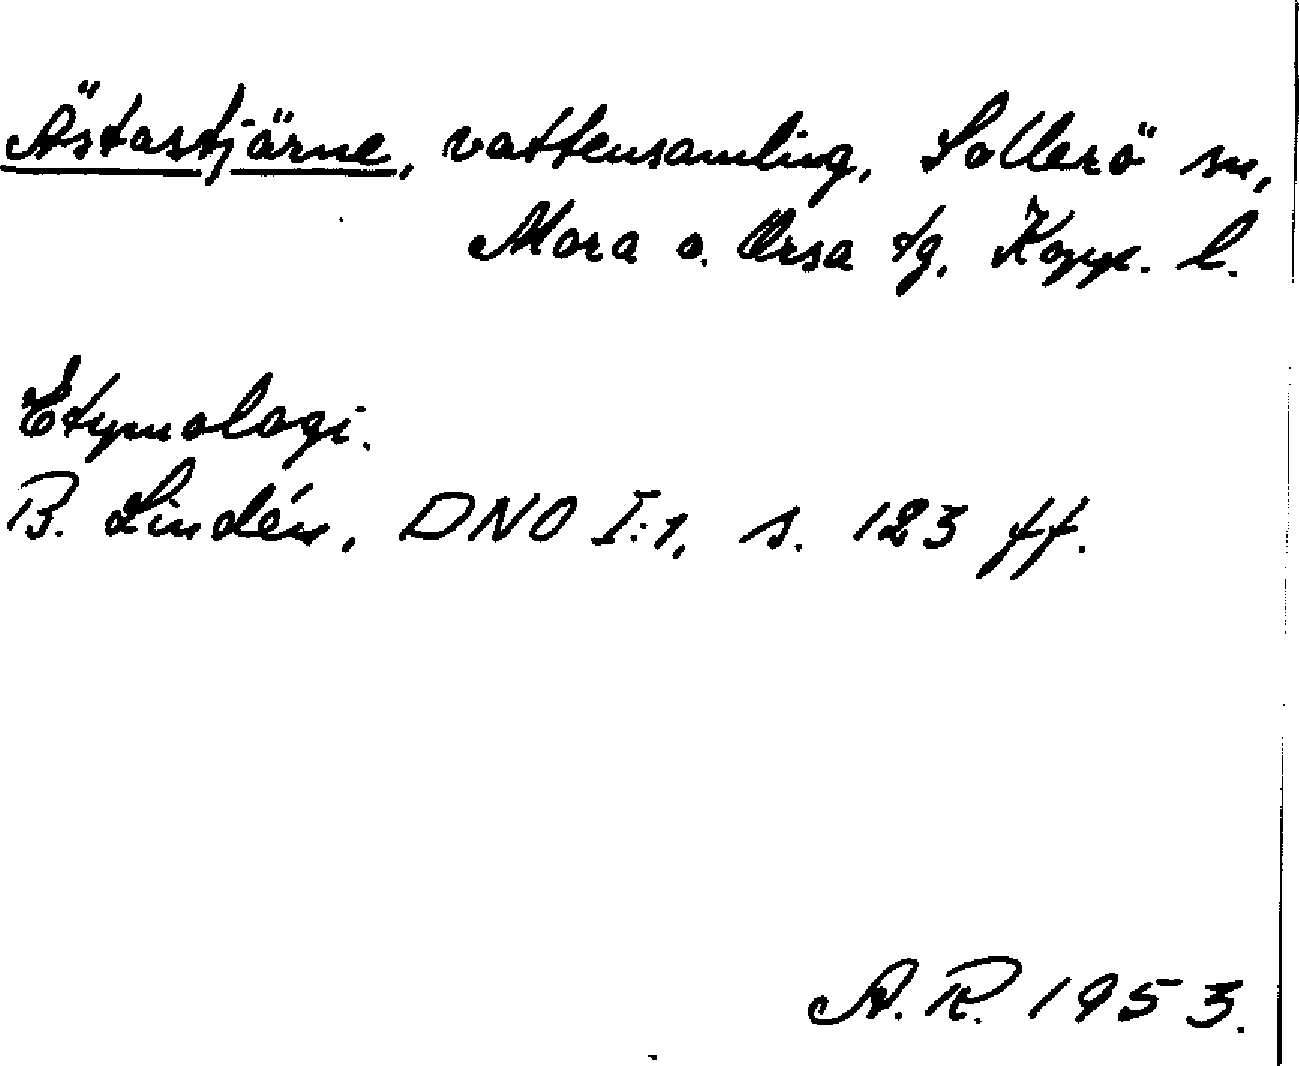 Ästastjärne, vattensamling, Sollerö sn,
Mora o. Orsa tg, Kopp. l.
Etymologi.
B. Lindén, DNO I:1, s. 123 ff.
A. R. 1953.